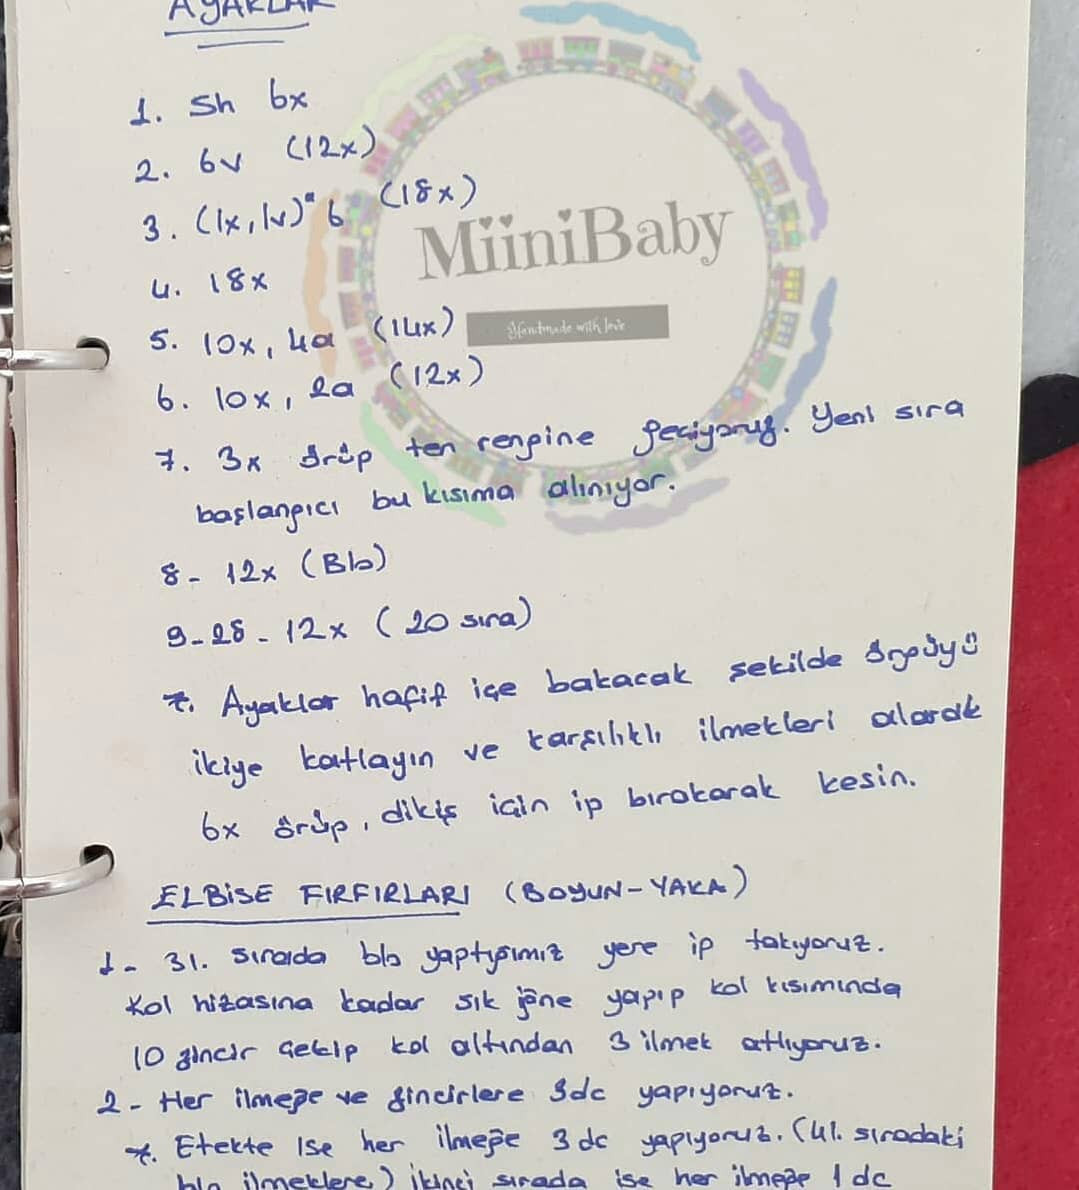 AYAKLAR
1. Sh 6x
2. 6v (12x)
3. (1x,1v)*6 (18x)
MiiniBaby
4. 18x
Handmade with love
5. 10x, 4a (14x)
6. 10x, 2a (12x)
7. 3x örüp ten rengine geçiyoruz. Yeni sıra
başlangıcı bu kısıma alınıyor.
8- 12x (Blo)
9-28- 12x (20 sıra)
*. Ayaklar hafif içe bakacak şekilde örgüyü
ikiye katlayın ve karşılıklı ilmekleri alarak
6x örüp, dikiş için ip bırakarak kesin.
ELBİSE FIRFIRLARI (BOYUN-YAKA)
1- 31. sırada blo yaptığımız yere ip takıyoruz.
Kol hizasına kadar sık iğne yapıp kol kısımında
10 zincir çekip kol altından 3 ilmek atlıyoruz.
2- Her ilmeğe ve zincirlere 3dc yapıyoruz.
*. Etekte ise her ilmeğe 3 dc yapıyoruz. (41. sıradaki
blo ilmeklere) ikinci sırada ise her ilmeğe 1 dc